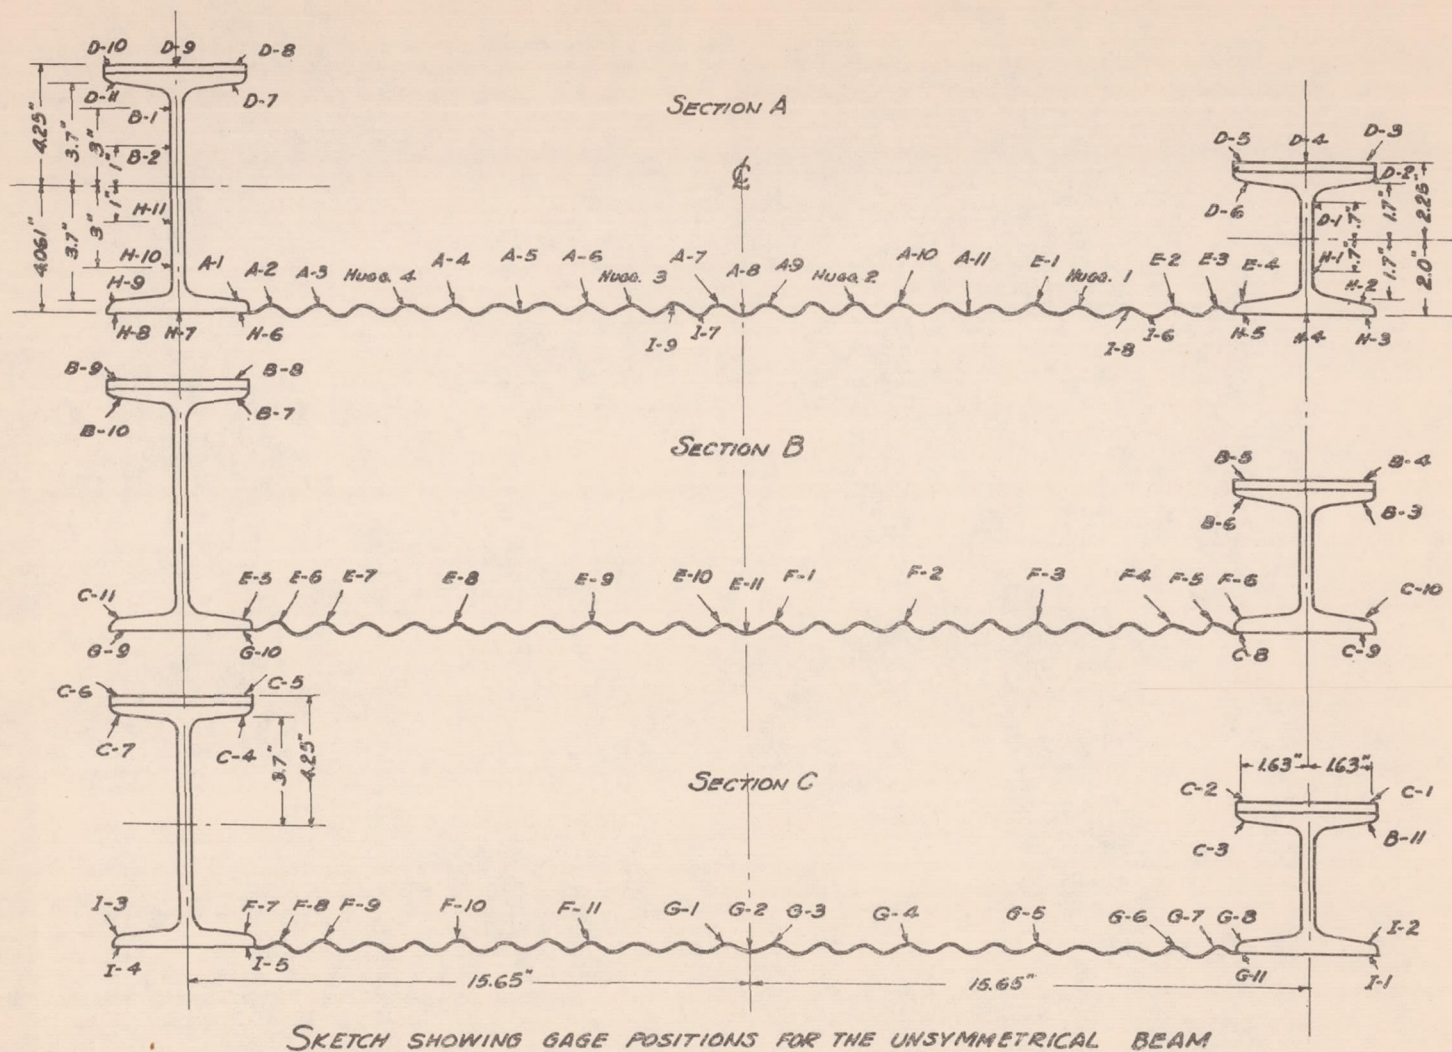 D-10 D-9 D-8
D-11 D-7
SECTION A
B-1
B-2
4.25"
3.7"
3"
1"
4.061"
3.7"
3"
1"
H-11
H-10
H-9
H-8 H-7 H-6
℄
D-5 D-4 D-3
D-2
D-6
D-1
.7"
1.7"
2.25"
H-1
.7"
1.7"
2.0"
H-2
A-1 A-2 A-3 HUGG. 4 A-4 A-5 A-6 HUGG. 3 A-7 A-8 A-9 HUGG. 2 A-10 A-11 E-1 HUGG. 1 E-2 E-3 E-4
I-9 I-7 I-8 I-6 H-5 H-4 H-3
B-9 B-8
B-7
B-10
SECTION B
B-5 B-4
B-6 B-3
C-11 E-5 E-6 E-7 E-8 E-9 E-10 E-11 F-1 F-2 F-3 F-4 F-5 F-6 C-10
G-9 G-10 C-8 C-9
C-6 C-5
C-7 C-4
3.7"
4.25"
SECTION C
1.63" 1.63"
C-2 C-1
C-3 B-11
I-3 F-7 F-8 F-9 F-10 F-11 G-1 G-2 G-3 G-4 G-5 G-6 G-7 G-8 I-2
I-4 I-5 G-11 I-1
15.65" 15.65"
SKETCH SHOWING GAGE POSITIONS FOR THE UNSYMMETRICAL BEAM